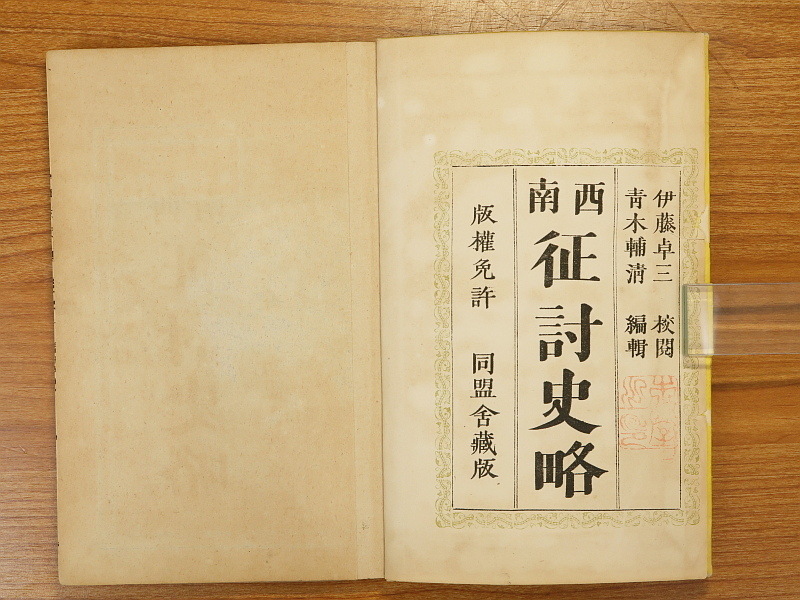 伊藤卓三 校閲
青木輔清 編輯
西南征討史略
版權免許 同盟舍藏版